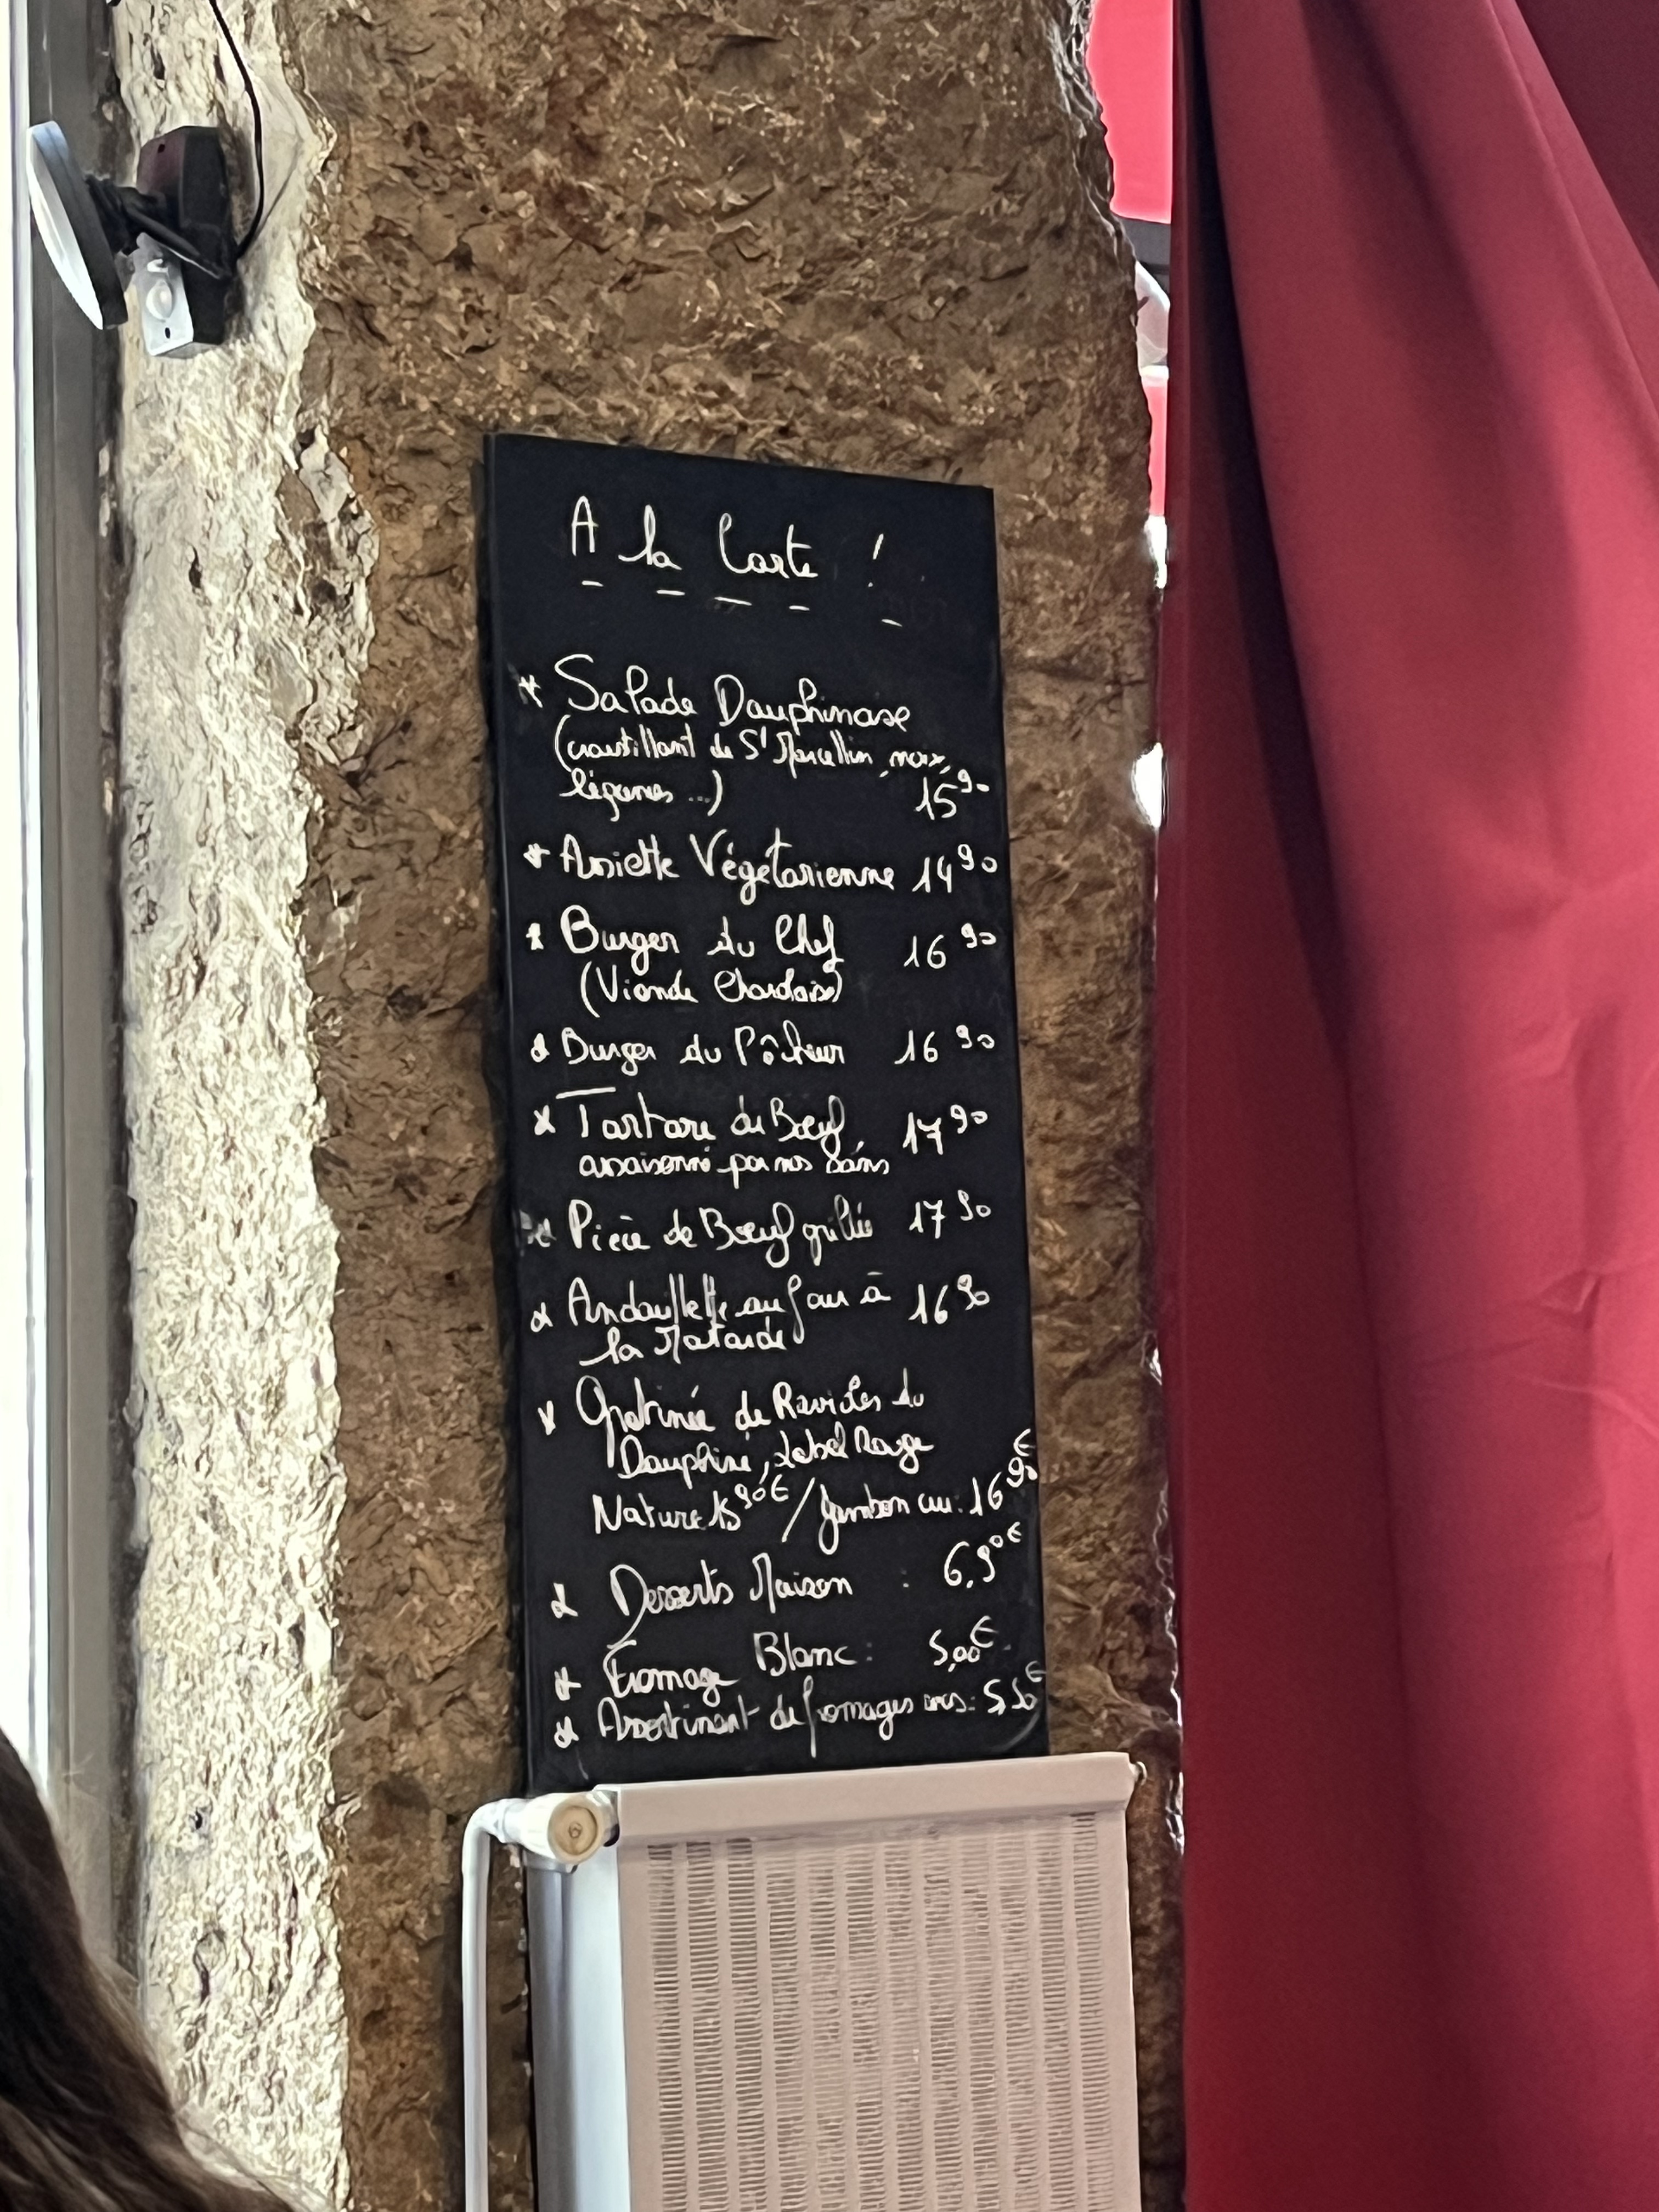 A la Carte !
* Salade Dauphinoise
(croustillant de St Marcellin, noix,
légumes ...) 15 90
* Assiette Végétarienne 14 90
* Burger du Chef 16 90
(Viande Charolaise)
* Burger du Pêcheur 16 90
* Tartare de Bœuf, 17 90
assaisonné par nos soins
* Pièce de Bœuf grillée 17 90
* Andouillette au four à 16 90
la Moutarde
* Gratinée de Ravioles du
Dauphiné, Label Rouge
Nature 15 90€ / Jambon cru : 16 90€
* Desserts Maison : 6,90€
* Fromage Blanc : 5,00€
* Assortiment de fromages secs : 5,50€